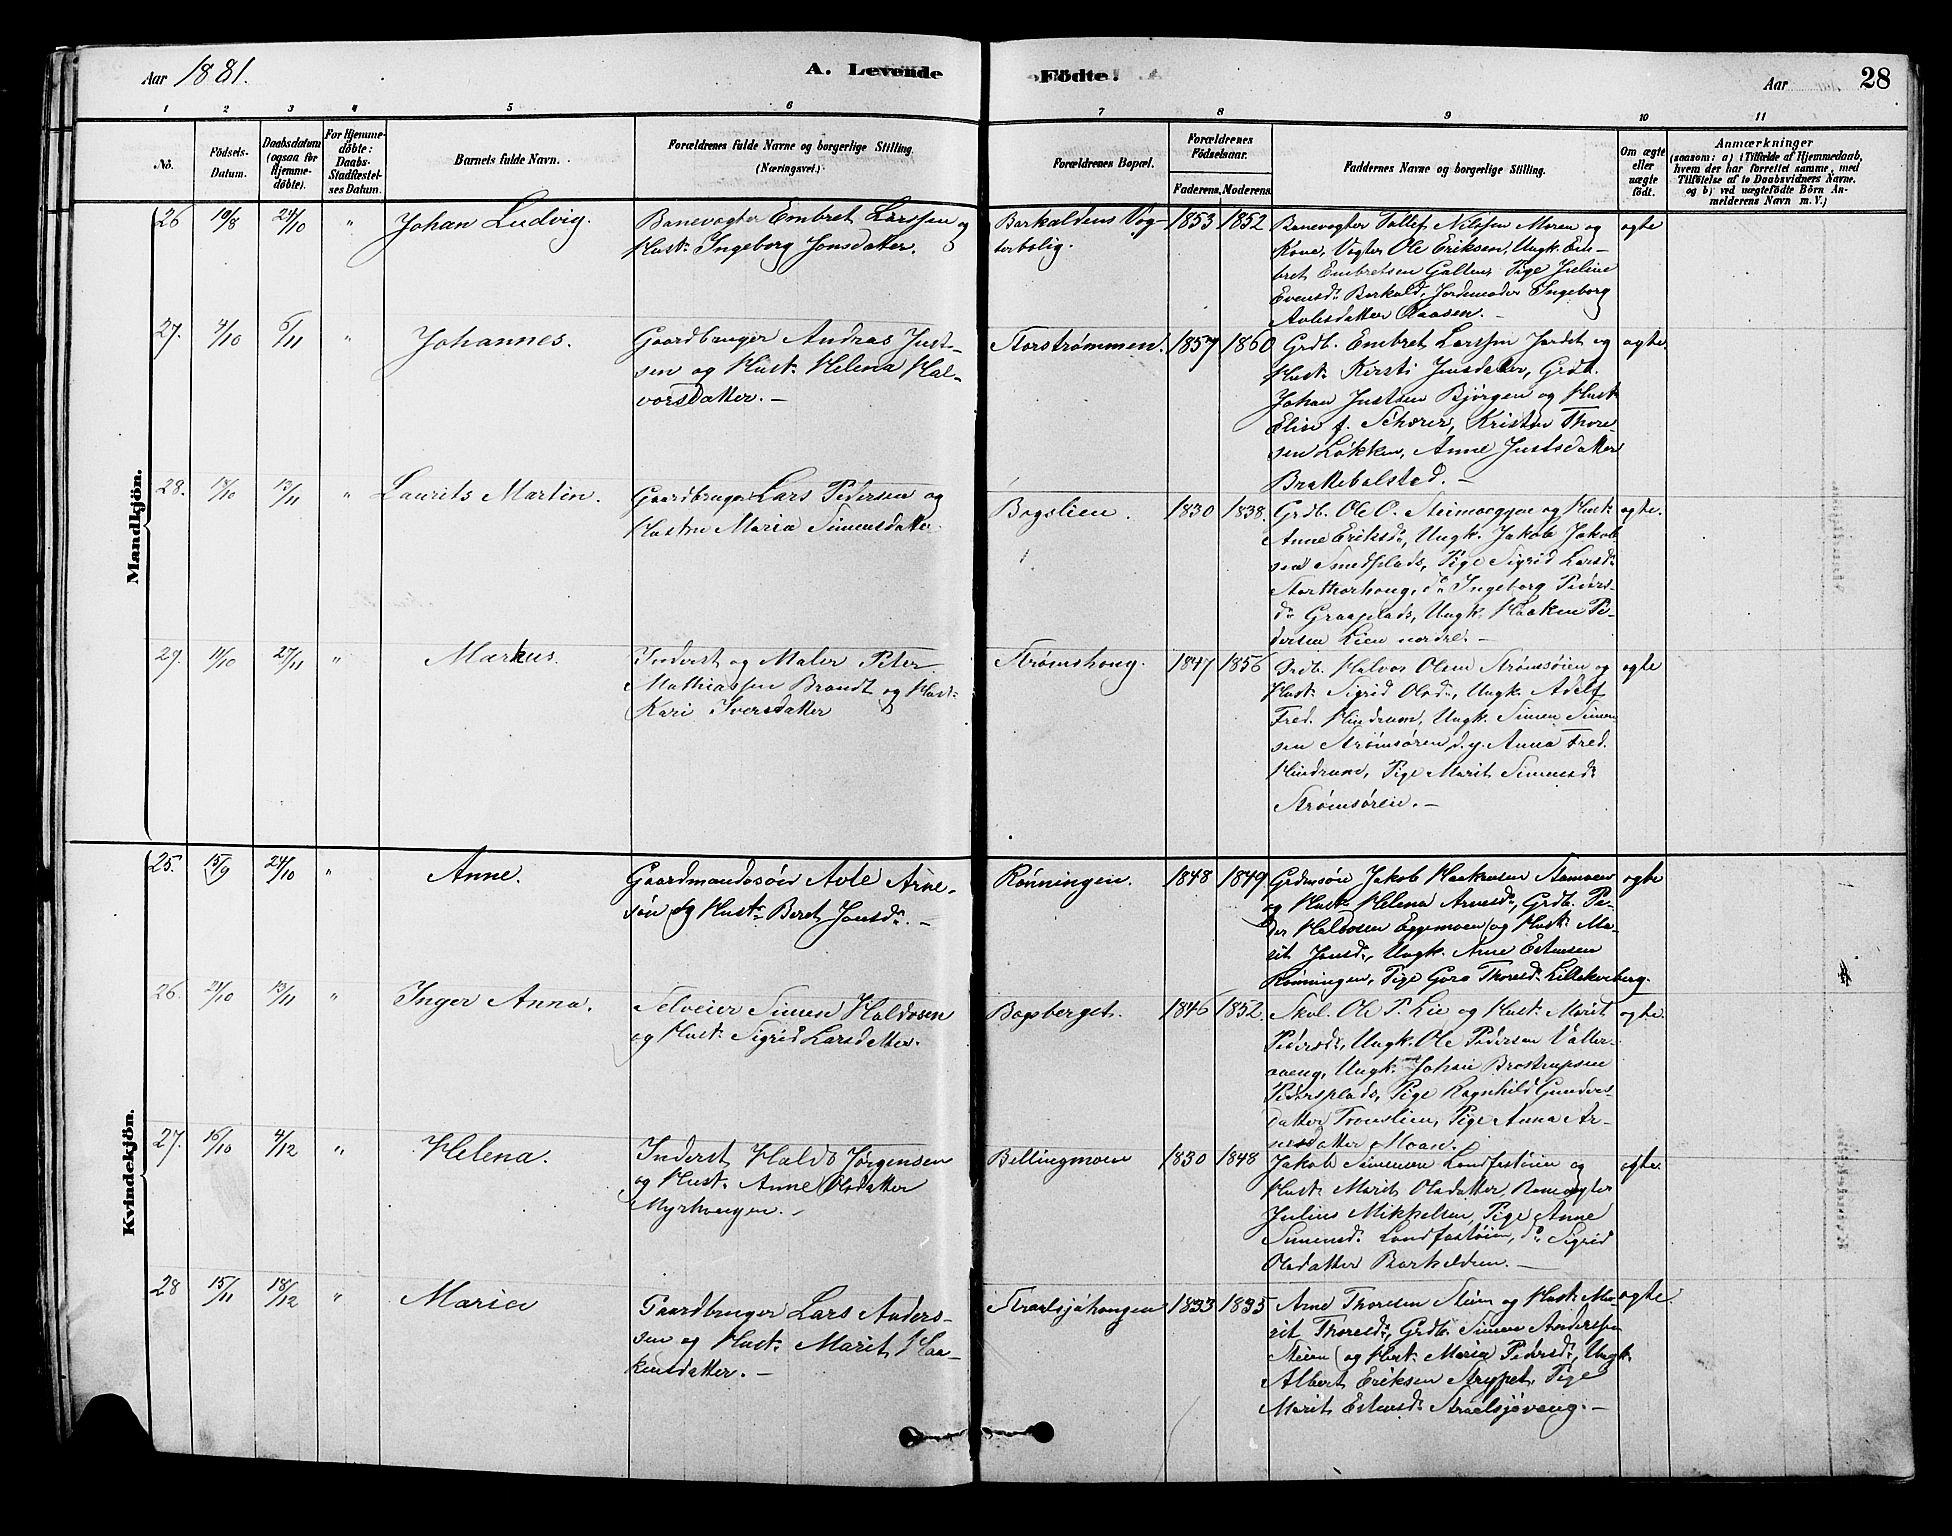 Aar 1881.
A. Levende Födte.
Aar
28
1 2 3 4 5 6 7 8 9 10 11
No.
Födsels-
Datum.
Daabsdatum
(ogsaa for
Hjemme-
döbte).
For Hjemme-
döbte:
Daabs-
Stadfæstel-
ses Datum.
Barnets fulde Navn.
Forældrenes fulde Navne og borgerlige Stilling.
(Næringsvei.)
Forældrenes Bopæl.
Forældrenes
Födselsaar.
Faderens. Moderens.
Faddernes Navne og borgerlige Stilling.
Om ægte
eller
uægte
födt.
Anmærkninger
(saasom: a) i Tilfælde af Hjemmedaab,
hvem der har forrettet samme, med
Tilföielse af to Daabsvidners Navne,
og b) ved uægtefödte Börn An-
melderens Navn m. V.)
Mandkjön.
26 19/8 24/10 " Johan Ludvig.
Banevogter Embret Larssen og
Hust. Ingeborg Jonsdatter.
Barkaldens Vog-
terbolig.
1853 1852
Banevogter Tollef Nilssen Moren og
Kone, Vogter Ole Eriksen, Ungk. Em-
bret Embretsen Galten, Pige Juline
Evensdr Barkald, Jordemoder Ingeborg
Avlesdatter Aaasen. —
ægte
27. 4/10 6/11 " Johannes.
Gaardbruger Andras Just-
sen og Hust. Helena Hal-
vorsdatter. —
Storstrømmen.
1857 1860
Grdb. Embret Larssen Jordet og
Hust. Kirsti Jensdatter, Grdb.
Johan Justsen Bjørgen og Hust.
Elise f. Schærer, Kristen Thore-
sen Løkken, Anne Justsdatter
Brakkebalstad. —
ægte.
28. 14/10 13/11 " Laurits Martin.
Gaardbruger Lars Pedersen og
Hustru Maria Simensdatter.
Bogslien.
1830 1838.
Grdb. Ole O. Steimoeggen og Hust.
Anne Eriksdr, Ungk. Jakob Jakob-
sen Smedplads, Pige Sigrid Larsdr
Storthorhaug, do Ingeborg Peders-
dr Graaplads, Ungk. Haaken Pe-
dersen Lien nordre. —
ægte.
29. 11/10 27/11 " Markus.
Inderst og Maler Peter
Mathiassen Brandt og Hust.
Kari Iversdatter
Strømshaug.
1847 1856
Grdb. Halvor Olsen Strømsøien og
Hust. Sigrid Olsdr, Ungk. Adolf
Fred. Hindrum, Ungk. Simen Simen-
sen Strømsøren d.y. Anna Fred.
Hindrum, Pige Marit Simensdr
Strømsøren. —
ægte
Kvindekjön.
25. 15/9 24/10 " Anne.
Gaardmandssøn Avle Arne-
søn og Hust. Beret Jonsdr. —
Rønningen.
1848 1849
Grdmsøn Jakob Haakensen Aamoen
og Hust. Helena Arnesdr, Grdb. Pe-
der Halvosen Eggemoen og Hust. Ma-
rit Jonsdr, Ungk. Arne Estensen
Rønningen, Pige Goro Thoresdr Lillekveberg.
ægte
26. 24/10 13/11 " Inger Anna.
Selveier Simen Haldosen
og Hust. Sigrid Larsdatter.
Bogsberget.
1846 1852.
Skol. Ole P. Lie og Hust. Marit
Pedersdr, Ungk. Ole Pedersen Valler-
aaeng, Ungk. Johan Brostrupsen
Pedersplads, Pige Ragnhild Gunders-
datter Tronslien, Pige Anna Ar-
nesdatter Moan.
ægte.
27. 16/10 4/12 " Helena.
Inderst Haldo Jørgensen
og Hust. Anne Olsdatter
Myrhaugen. —
Bellingmoen
1830 1848
Jakob Simensen Londfastøien og
Hust. Marit Olsdatter, Banevogter
Julius Mikkelsen, Pige Anne
Simensdr Londfastøien, do Sigrid
Olsdatter Barkelden. —
ægte.
28 15/11 18/12 " Maria
Gaardbruger Lars Anders-
sen og Hust. Marit Haa-
kensdatter. —
Straalsjøhaugen
1833 1835
Arne Thoresen Steien og Hust. Ma-
rit Thoresdr, Grdb. Simen Anderssen
Steien og Hust. Maria Pedersdr, Ungk.
Albert Eriksen Strypet, Pige
Marit Estensdr Straalsjøvang. —
ægte.